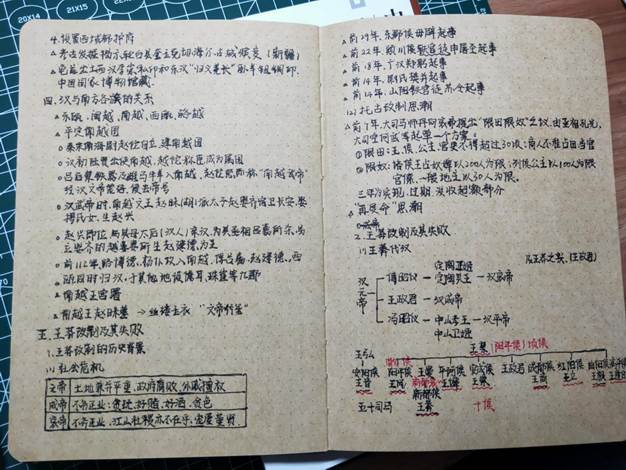 4.设置西域都护府
四.汉与南方各族的关系
△东瓯、闽越、南越、西瓯、骆越
△平定南越国
○秦末南海尉赵佗自立,建南越国
○汉初陆贾出使南越,赵佗称臣成为属国
○吕后
经汉文帝安抚,使去帝号
○汉武帝时,南越文王赵眜(胡)派太子赵婴齐宿卫长安,娶
樛氏女,生赵兴
○赵兴即位,与其母太后(汉人)亲汉,为其丞相吕嘉所杀,另
立婴齐的越妻婴所生赵建德为王
○前112年,路博德、杨仆攻入南越,俘吕嘉、赵建德,西
瓯同时归汉,于其他地设儋耳、珠崖等九郡
△南越王宫署
△南越王赵眜墓→丝缕玉衣 “文帝行玺”
五.王莽改制及其失败
1.王莽改制的历史背景
(1)社会危机
文帝 土地兼并严重,政府腐败,外戚擅权
成帝 不务正业:贪玩,好赌,好酒,贪色
哀帝 不务正业,江山社稷亦不在乎,宠爱董贤
△前22年,颍川铁官徒申屠圣起事
△前18年,广汉郑躬起事
△前14年,尉氏樊并起事
△前14年,山阳铁官徒苏令起事
(2)托古改制思潮
△前7年,大司马师丹向哀帝提出“限田限奴”之议,由丞相孔光、
大司空何武等起草一个方案。
○限田:王、侯、公主、官吏不得超过30顷;商人不准占田当官
○限奴:诸侯王占奴婢以200人为限,列侯公主以100人为限
官僚、一般地主以30人为限。
三年内实现,过期,没收超额部分
“再受命”思潮
2.王莽改制及其失败
(1)王莽代汉
定陶丁姬
汉元帝
傅昭仪—定陶共王—汉哀帝
王政君—汉成帝
冯昭仪—中山孝王—汉平帝
中山卫姬
王禁(阳平侯)顷侯
王弘
安阳侯 王音
阳平侯 王凤
王曼
平阿侯 王谭
安成侯 王崇
王政君
成都侯 王商
红阳侯 王立
新都侯 王莽
五大司马
十侯